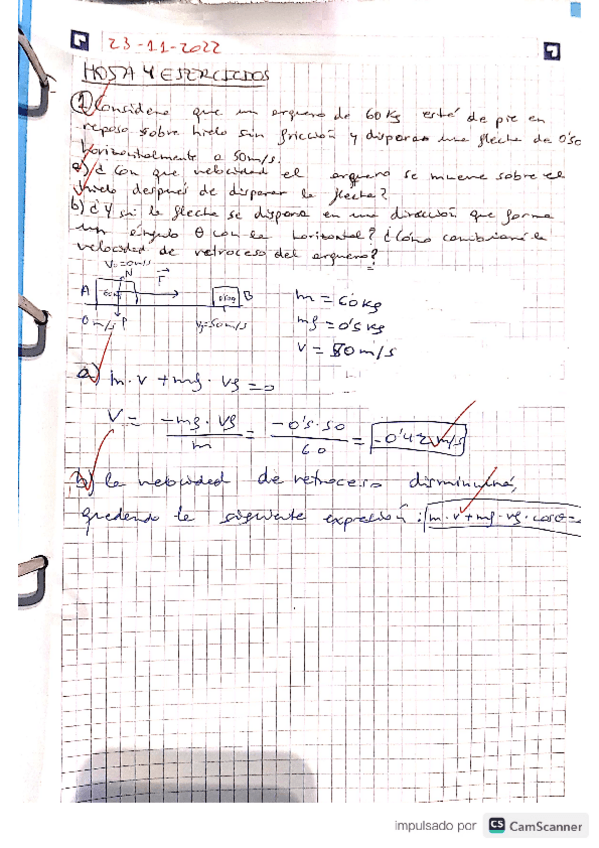 23-11-2022
HOJA 4 EJERCICIOS
① Considera que un arquero de 60 Kg está de pie en
reposo sobre hielo sin fricción y dispara una flecha de 0'50
horizontalmente a 50 m/s.
a) ¿ Con que velocidad el arquero se mueve sobre el
hielo después de disparar la flecha?
b) ¿ Y si la flecha se dispara en una dirección que forma
un ángulo θ con la horizontal? ¿Cómo cambiará la
velocidad de retroceso del arquero?
V₀=0m/s
N
F
A
B
0 m/s
P
m = 60 kg
mf = 0's kg
v = 50 m/s
a) m·v + mf·vf = 0
V = -mf·vf / m = -0's·50 / 60 = -0'42 m/s
b) la velocidad de retroceso disminuirá,
quedando la siguiente expresión: m·v+mf·vf·cosθ=
impulsado por CS CamScanner